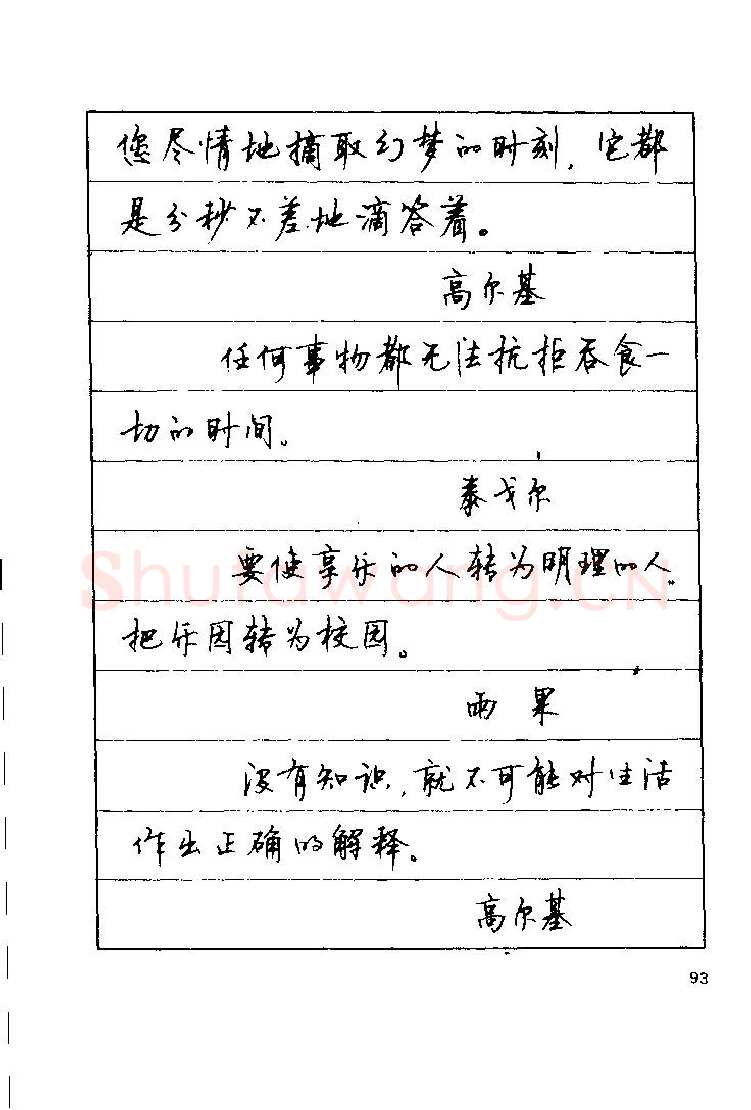 您尽情地摘取幻梦的时刻，它都
是分秒不差地滴答着。
高尔基
任何事物都无法抗拒吞食一
切的时间。
泰戈尔
要使享乐的人转为明理的人。
把乐园转为校园。
雨果
没有知识，就不可能对生活
作出正确的解释。
高尔基
93
Shufawang.CN